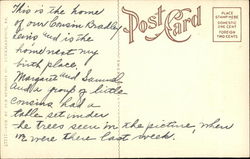 Post Card
PLACE
STAMP HERE
DOMESTIC
ONE CENT
FOREIGN
TWO CENTS
This is the home
of our Cousin Bradley
Lewis and is the
home next my
birth place,
Margaret and Samuel
and a group of little
cousins had a
table set under
the trees seen in the picture, when
we were there last week.